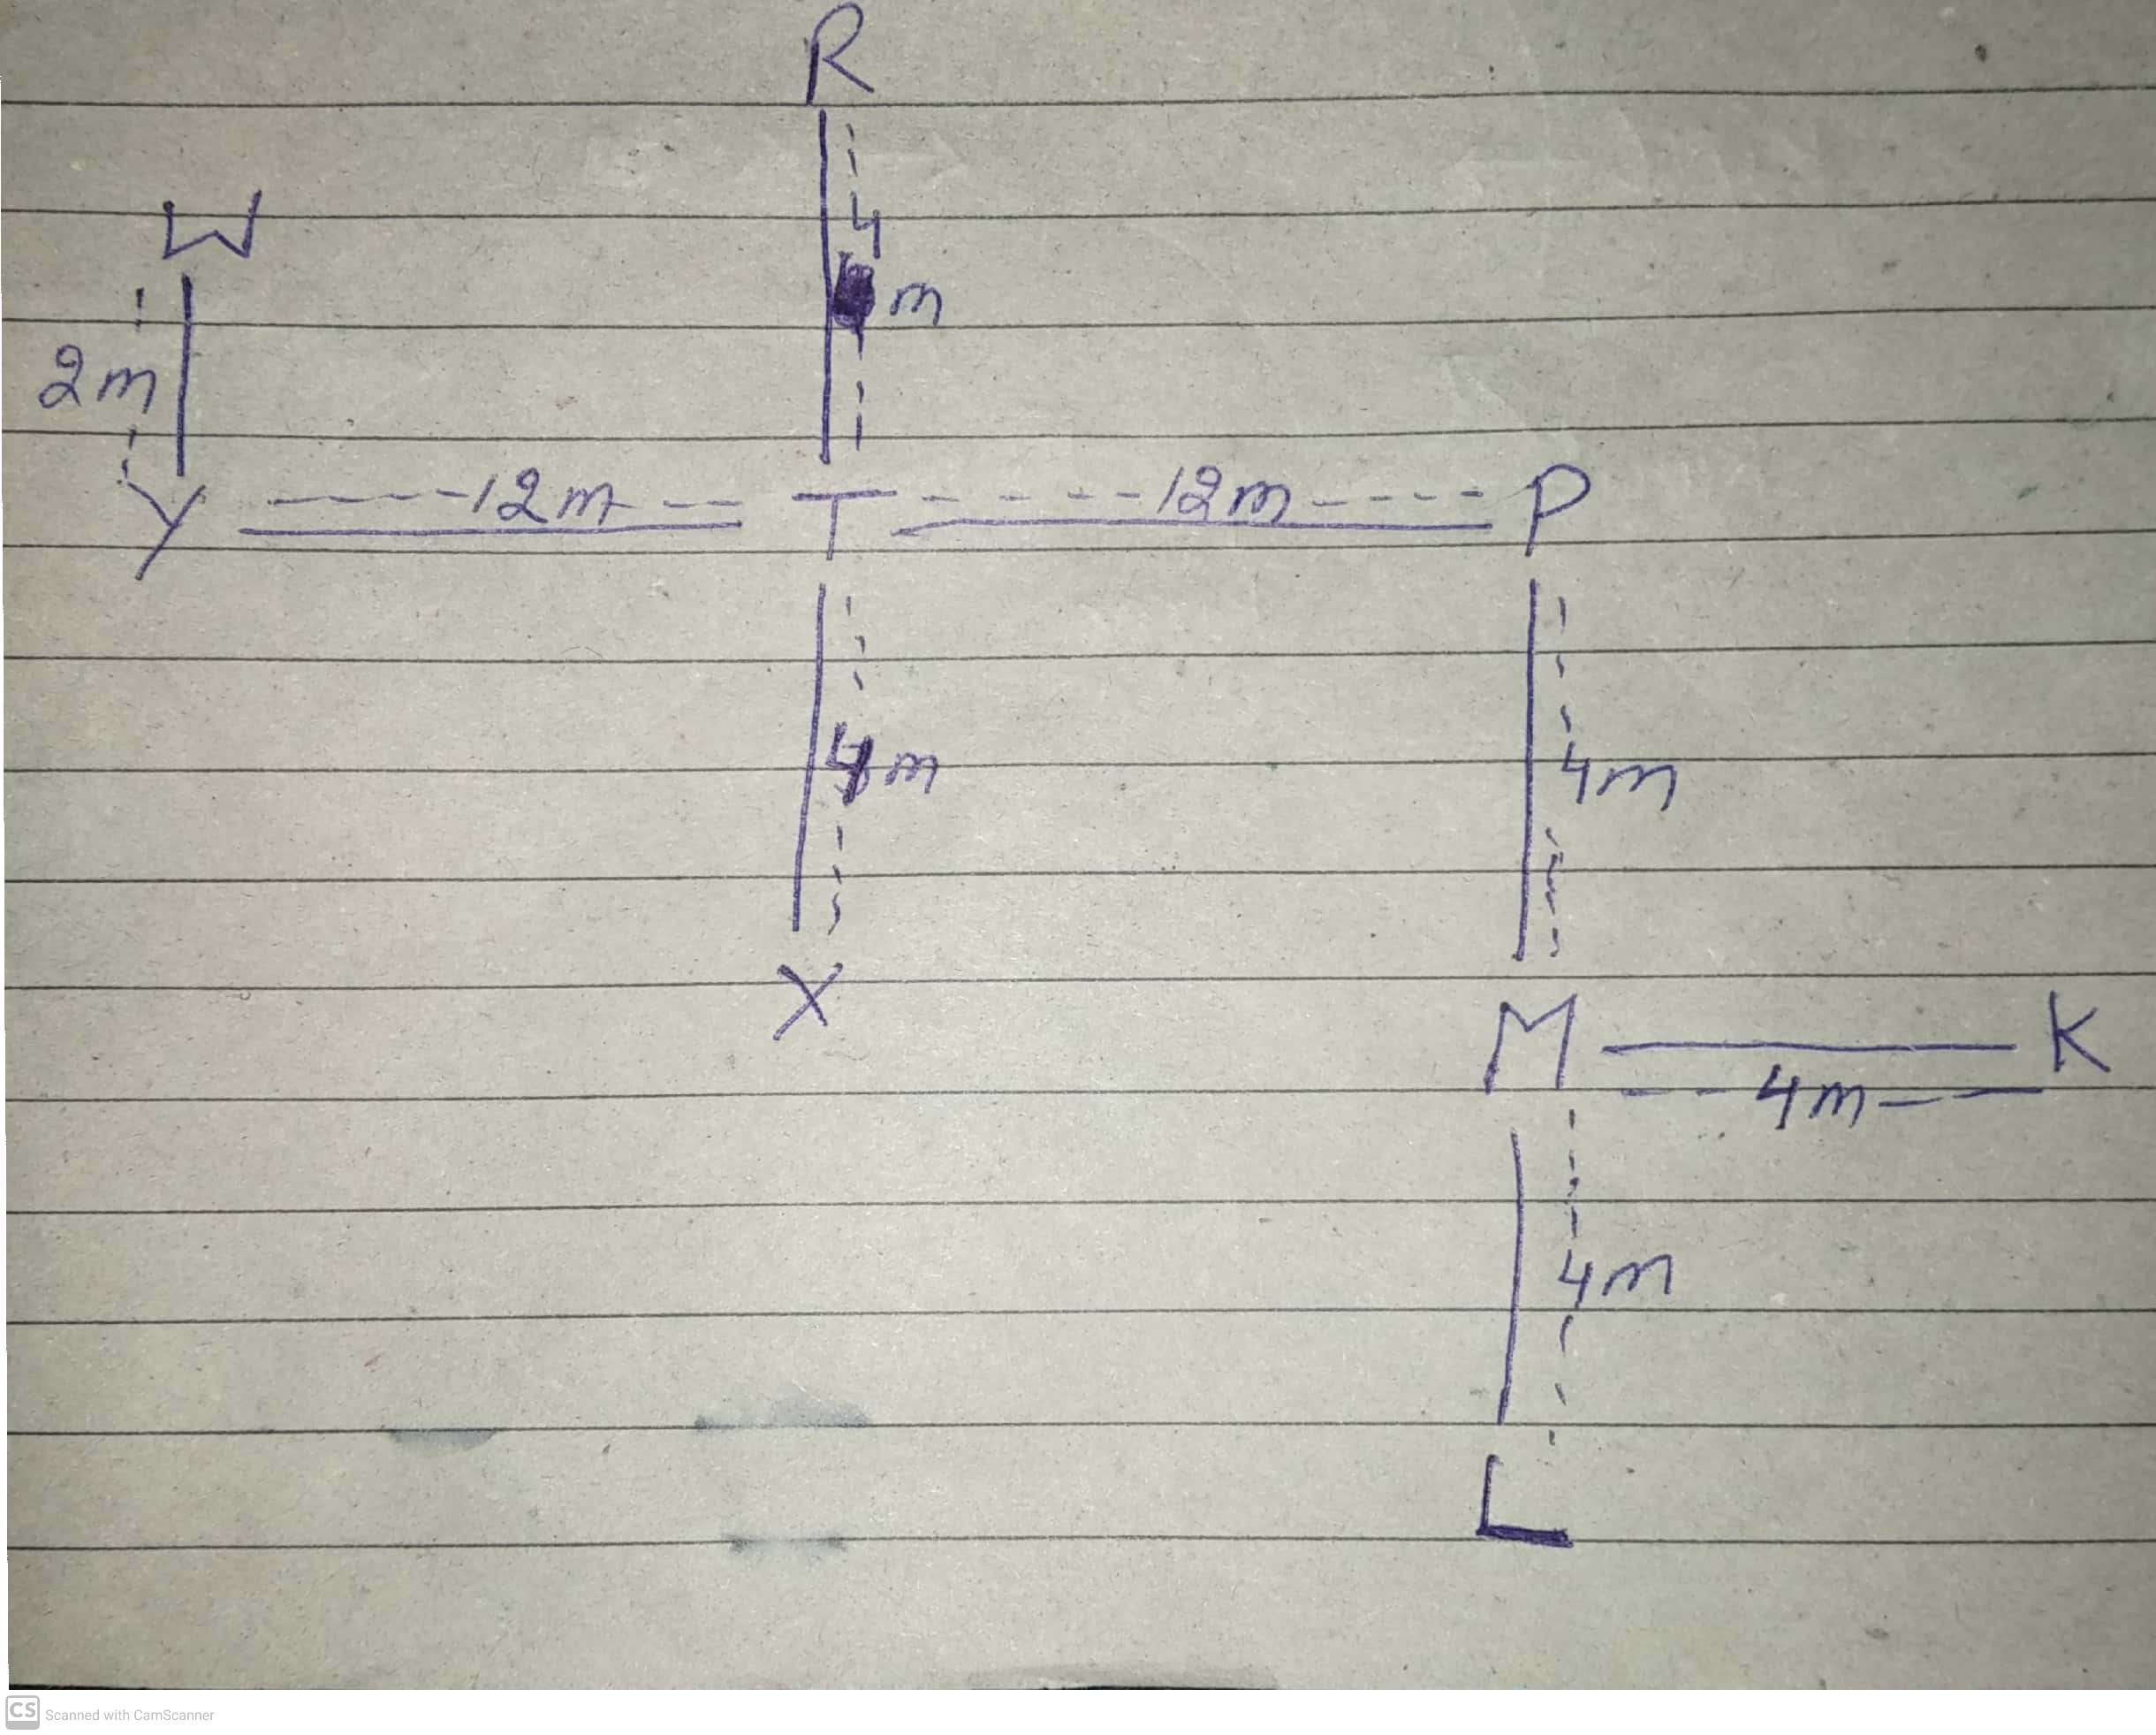 R
4
W
m
2m
Y 12m T 12m P
4m 4m
X
M K
4m
4m
L
CS Scanned with CamScanner